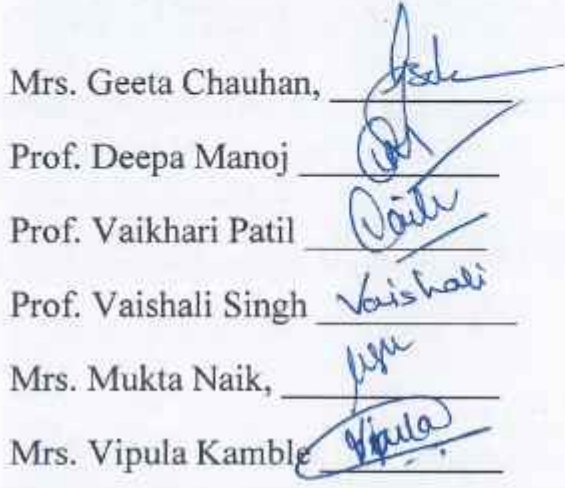 Mrs. Geeta Chauhan,
Prof. Deepa Manoj
Prof. Vaikhari Patil
Prof. Vaishali Singh Vaishali
Mrs. Mukta Naik,
Mrs. Vipula Kamble Vipula